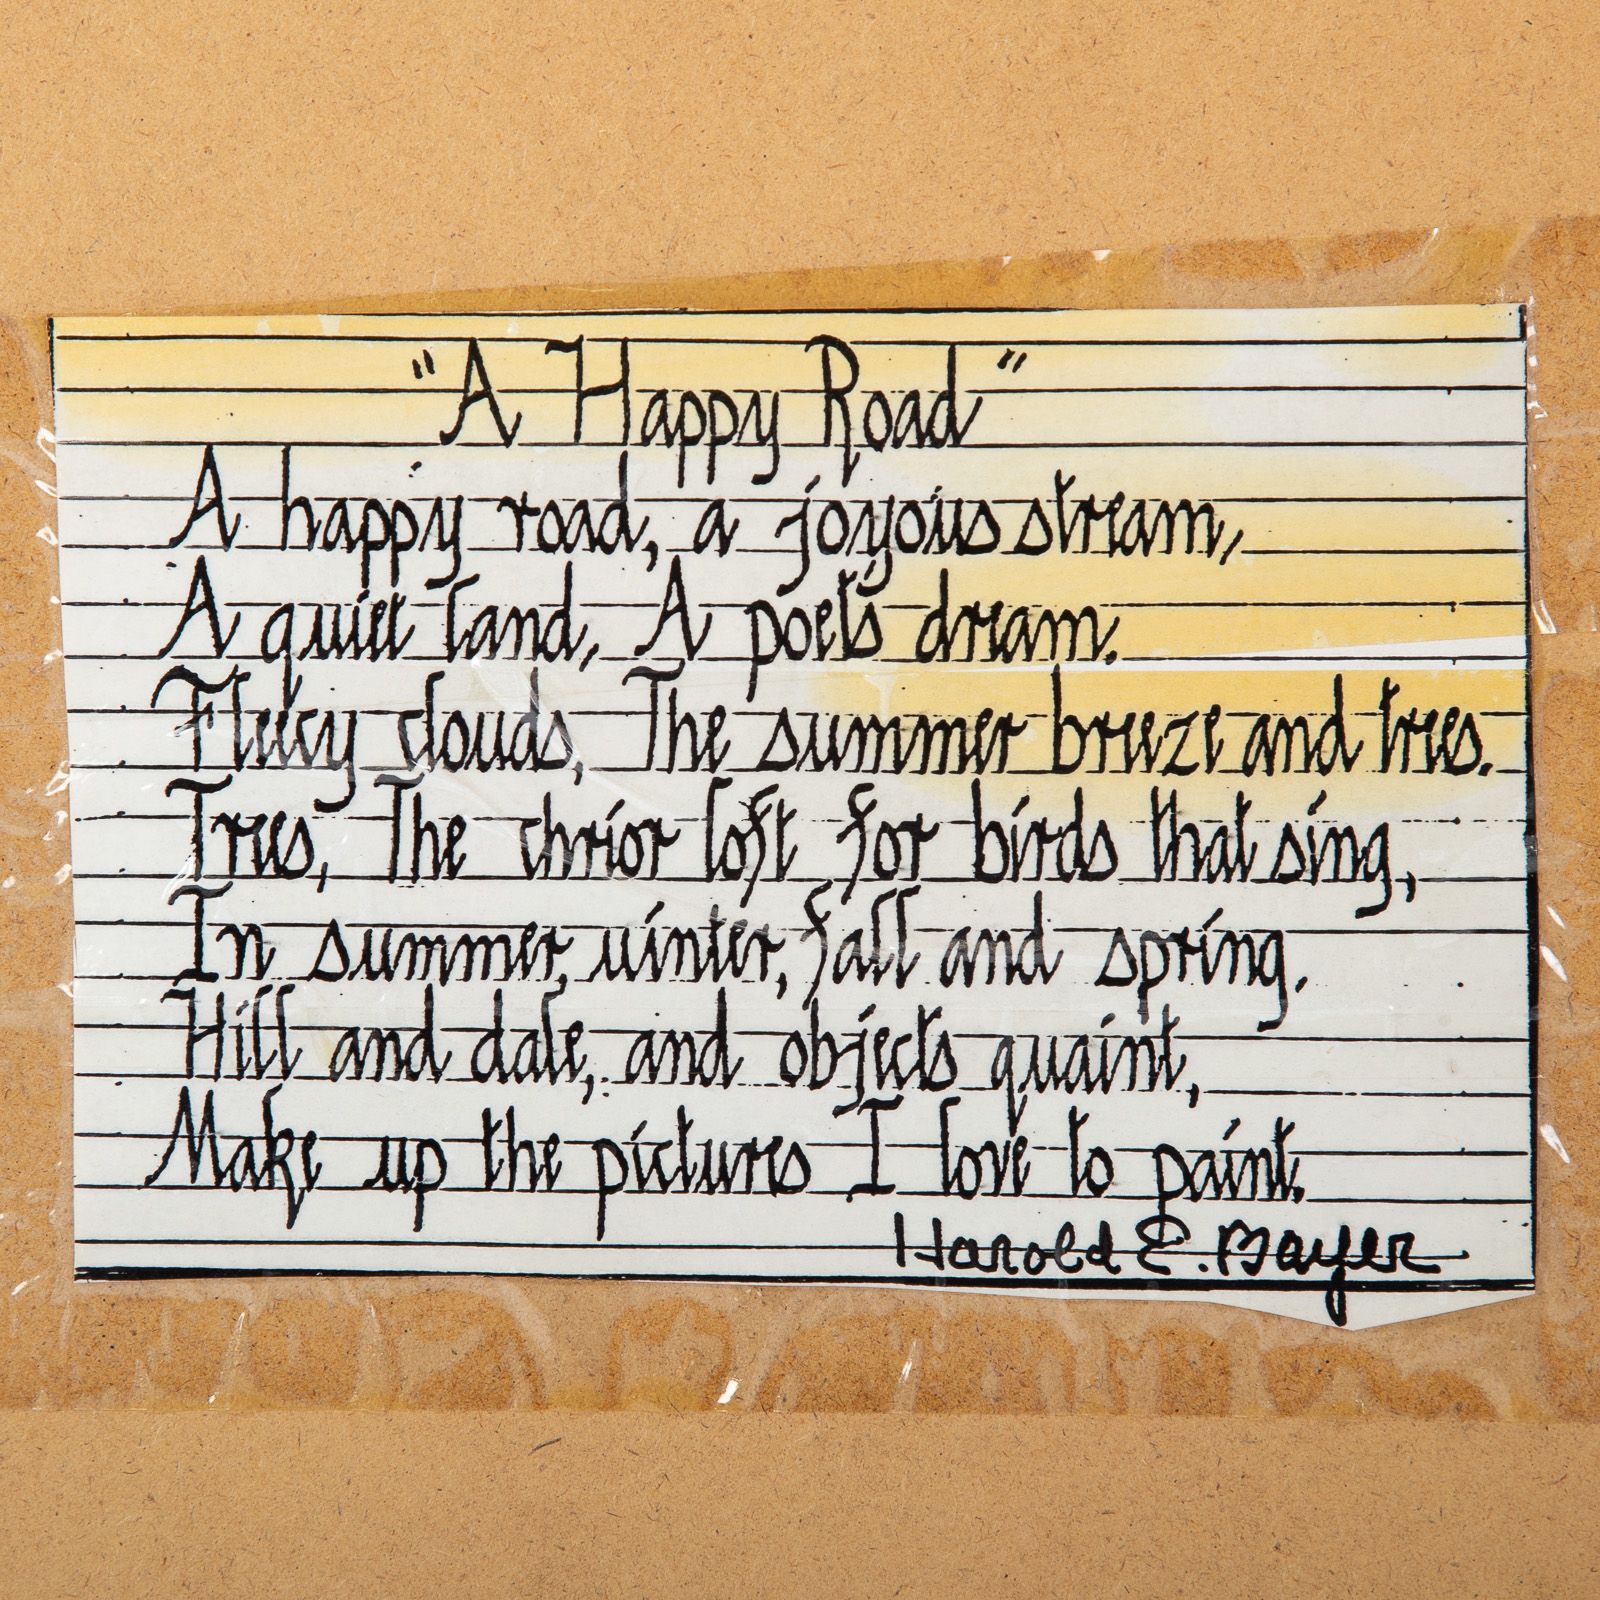 "A Happy Road"
A happy road, a joyous stream,
A quiet land, A poets dream.
Fleecy clouds, The summer breeze and trees.
Trees, The chrior loft for birds that sing,
In summer, winter, fall and spring.
Hill and dale, and objects quaint,
Make up the pictures I love to paint.
Harold E. Bayer